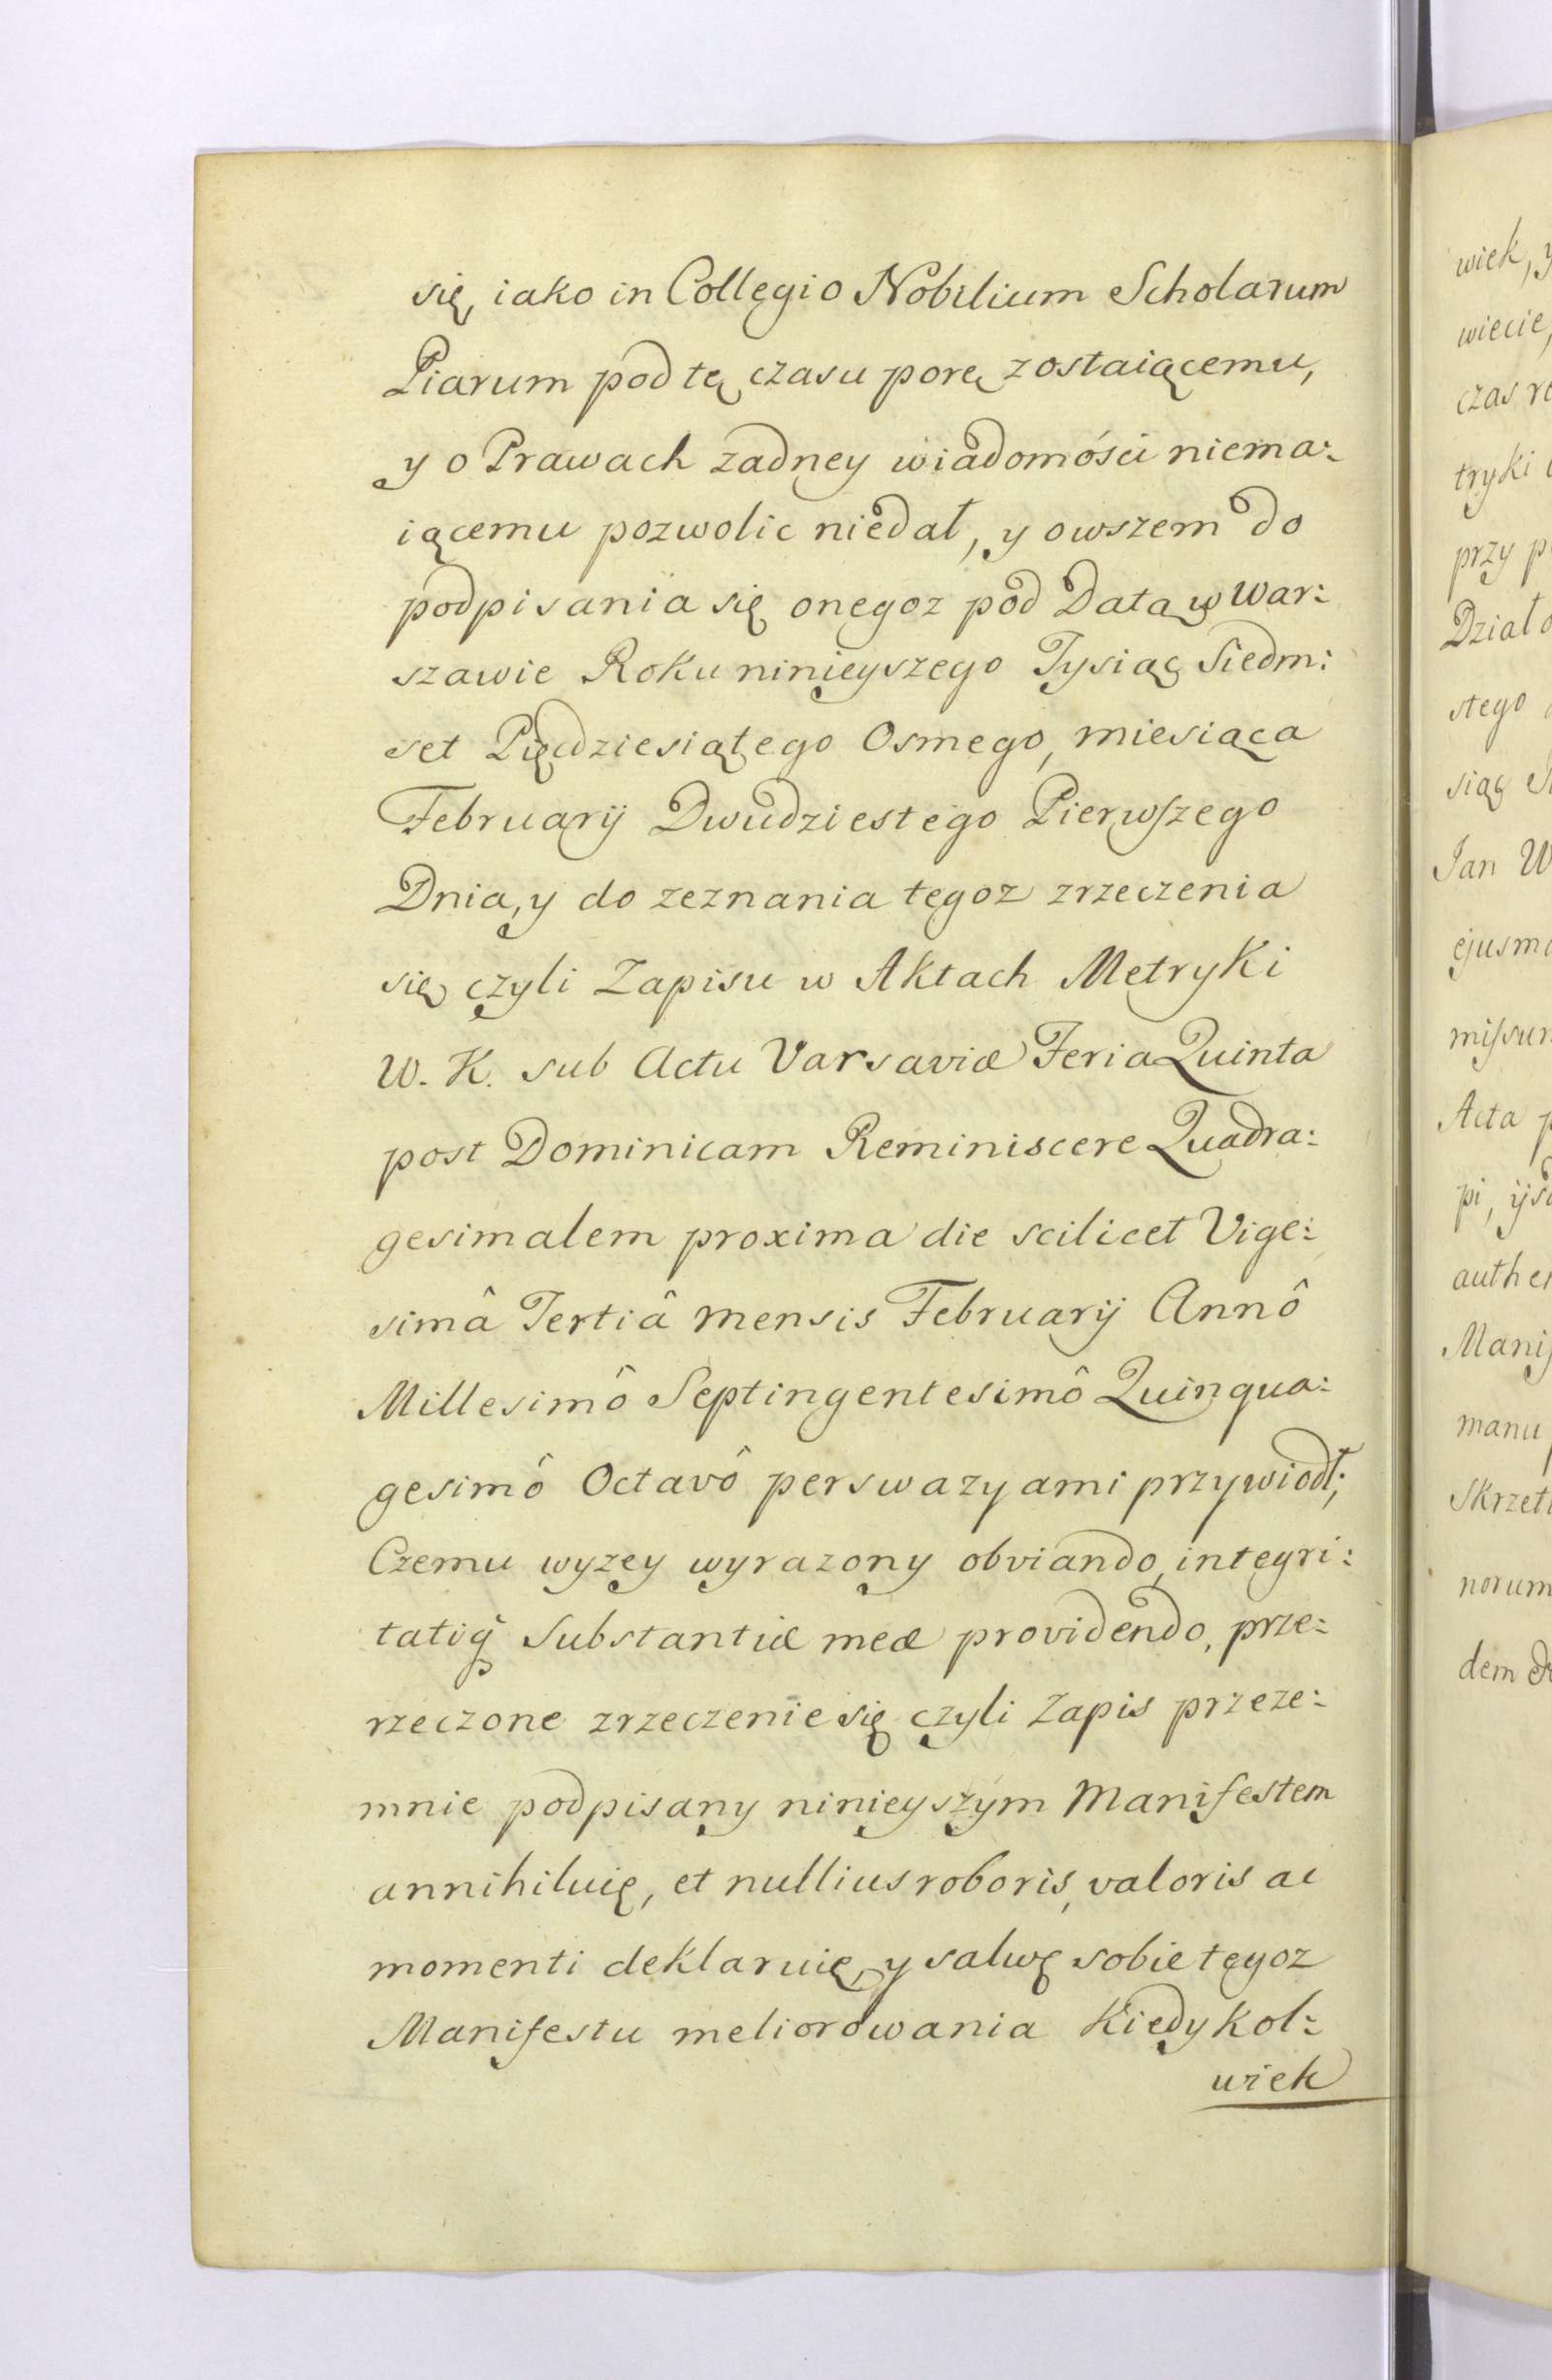 się, iako in Collegio Nobilium Scholarum
Piarum pod tę czasu porę zostaiącemu,
y o Prawach zadney wiadomości niema:
iącemu pozwolic niedał, y owszem do
podpisania się onegoz pod Datą w War:
szawie Roku ninieyszego Tysiąc Siedm:
set Pięcdziesiątego Osmego, miesiąca
February Dwudziestego Pierwszego
Dnia, y do zeznania tegoz zrzeczenia
się czyli Zapisu w Aktach Metryki
W. K. sub Actu Varsaviæ Feria Quinta
post Dominicam Reminiscere Quadra:
gesimalem proxima die scilicet Vige:
simâ Tertiâ mensis Februarij Annô
Millesimô Septingentesimô Quinqua:
gesimô Octavô perswazyami przywiodł;
Czemu wyzey wyrazony obviando, integri:
tatiq́ Substantiæ meæ providendo, prze:
rzeczone zrzeczenie się czyli Zapis przeze:
mnie podpisany ninieyszym Manifestem
annihiluię, et nullius roboris, valoris ac
momenti deklaruię, y salwę sobie tegoz
Manifestu meliorowania kiedykol:
wiek
wiek, y
wiecie,
czas
tryki
przy
Dział
stego
siąc
Jan W
ejusm
Acta
pi,
Manif
manu
norum
dem